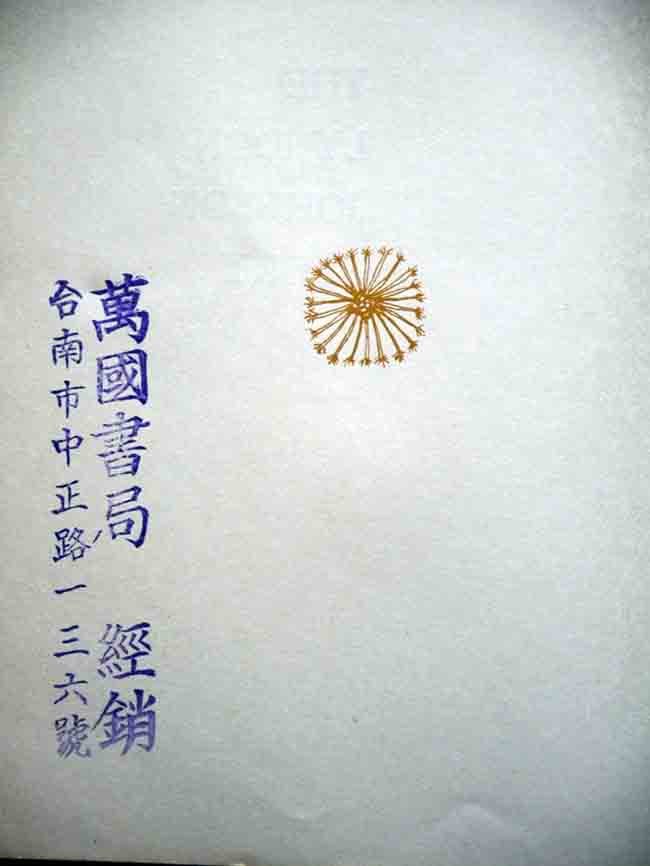 萬國書局 經銷
台南市中正路一三六號